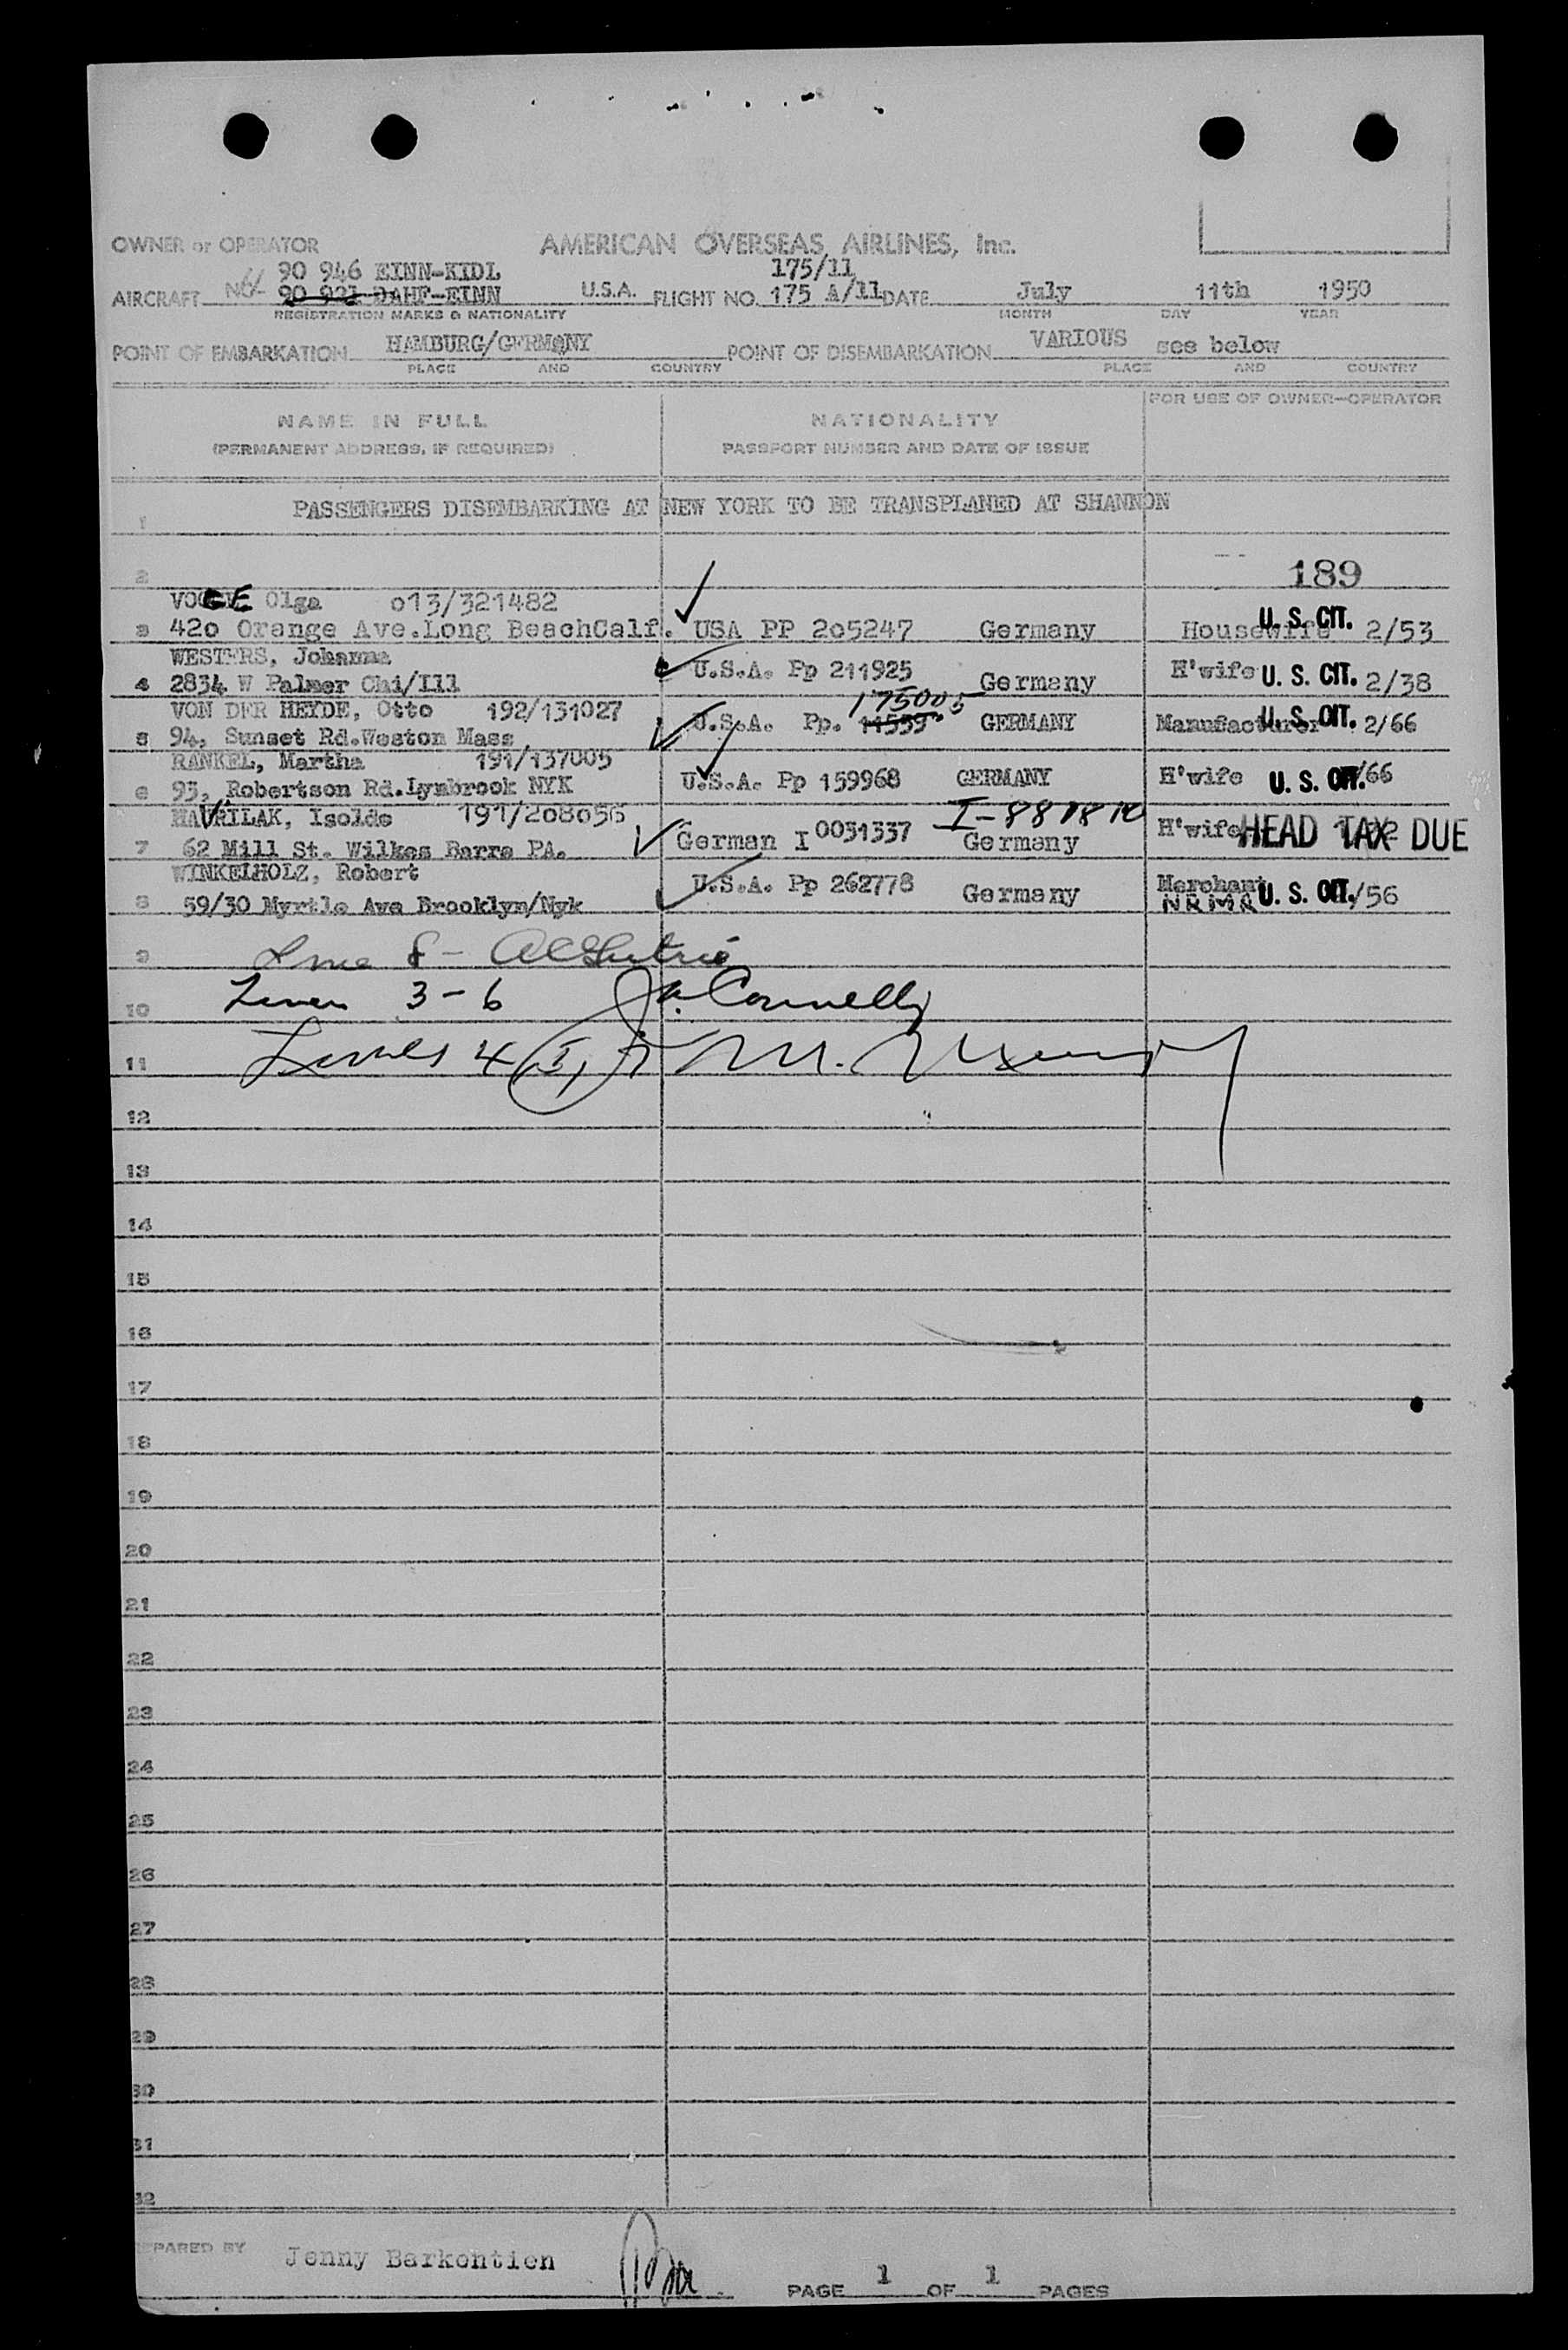 OWNER or OPERATOR AMERICAN OVERSEAS AIRLINES, Inc.
90 946 EINN-KIDL 175/11
AIRCRAFT 90 921 DAHF-EINN U.S.A. FLIGHT NO. 175 A/11 DATE July 11th 1950
REGISTRATION MARKS & NATIONALITY MONTH DAY YEAR
POINT OF EMBARKATION HAMBURG/GERMANY POINT OF DISEMBARKATION VARIOUS see below
PLACE AND COUNTRY PLACE AND COUNTRY
NAME IN FULL NATIONALITY FOR USE OF OWNER—OPERATOR
(PERMANENT ADDRESS, IF REQUIRED) PASSPORT NUMBER AND DATE OF ISSUE
1 PASSENGERS DISEMBARKING AT NEW YORK TO BE TRANSPLANED AT SHANNON
2 189
Olga o13/321482
3 42o Orange Ave.Long BeachCalf. USA PP 2o5247 Germany Housewife U. S. CIT. 2/53
WESTERS, Johanna
4 2834 W Palmer Chi/Ill U.S.A. Pp 211925 Germany H'wife U. S. CIT. 2/38
VON DER HEYDE, Otto 192/131027 175005
5 94, Sunset Rd.Weston Mass U.S.A. Pp. 11559 GERMANY Manufacturer U. S. CIT. 2/66
RANKEL, Martha 191/137005
6 93, Robertson Rd.Lynbrook NYK U.S.A. Pp 159968 GERMANY H'wife U. S. CIT. /66
HAVRILAK, Isolde 191/208056 I-881810
7 62 Mill St. Wilkes Barre PA. German I 0031337 Germany H'wife HEAD TAX DUE
WINKELHOLZ, Robert
8 59/30 Myrtle Ave Brooklyn/Nyk U.S.A. Pp 262778 Germany Merchant U. S. CIT. /56
NRMA
9 Line 8 -
10 Lines 3-6 J. Connelly
11 Lines 4
12
13
14
15
16
17
18
19
20
21
22
23
24
25
26
27
28
29
30
31
32
PREPARED BY Jenny Barkentien
PAGE 1 OF 1 PAGES